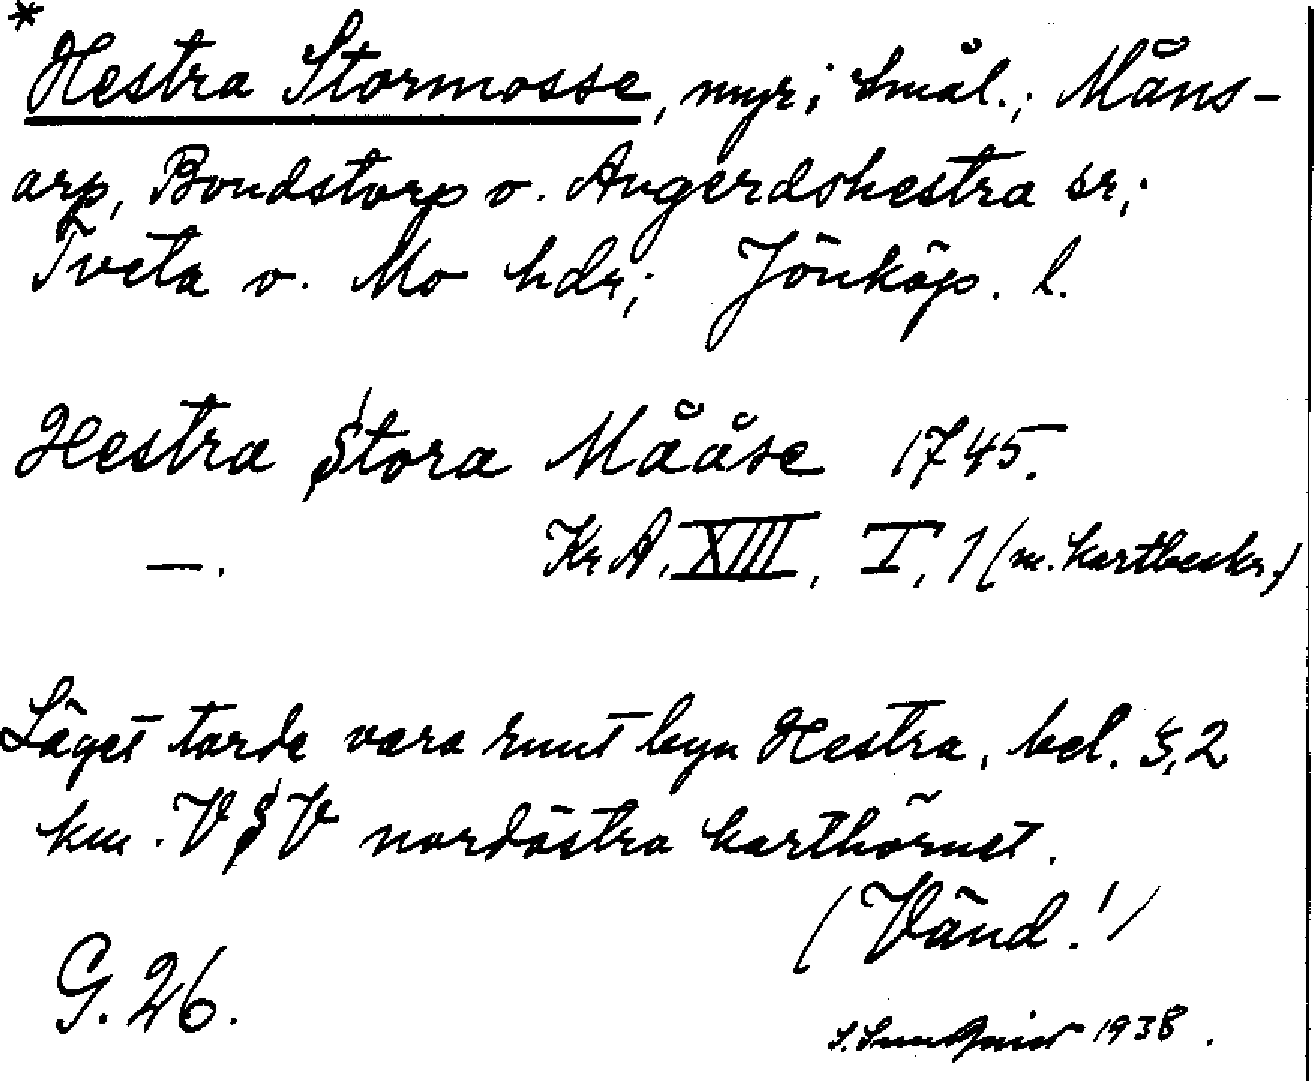 *
Hestra Stormosse, myr; Smål.; Måns-
arp, Bondstorp o. Angerdshestra sr;
Tveta o. Mo hdr; Jönköp. l.
Hestra Stora Mååse 1745.
—. Kr.A. XIII, I, 1 (m. kartbeskr.)
Läget torde vara runt byn Hestra, bel. 5,2
km. VSV nordöstra karthörnet.
(Vänd!)
G. 26.
1938.